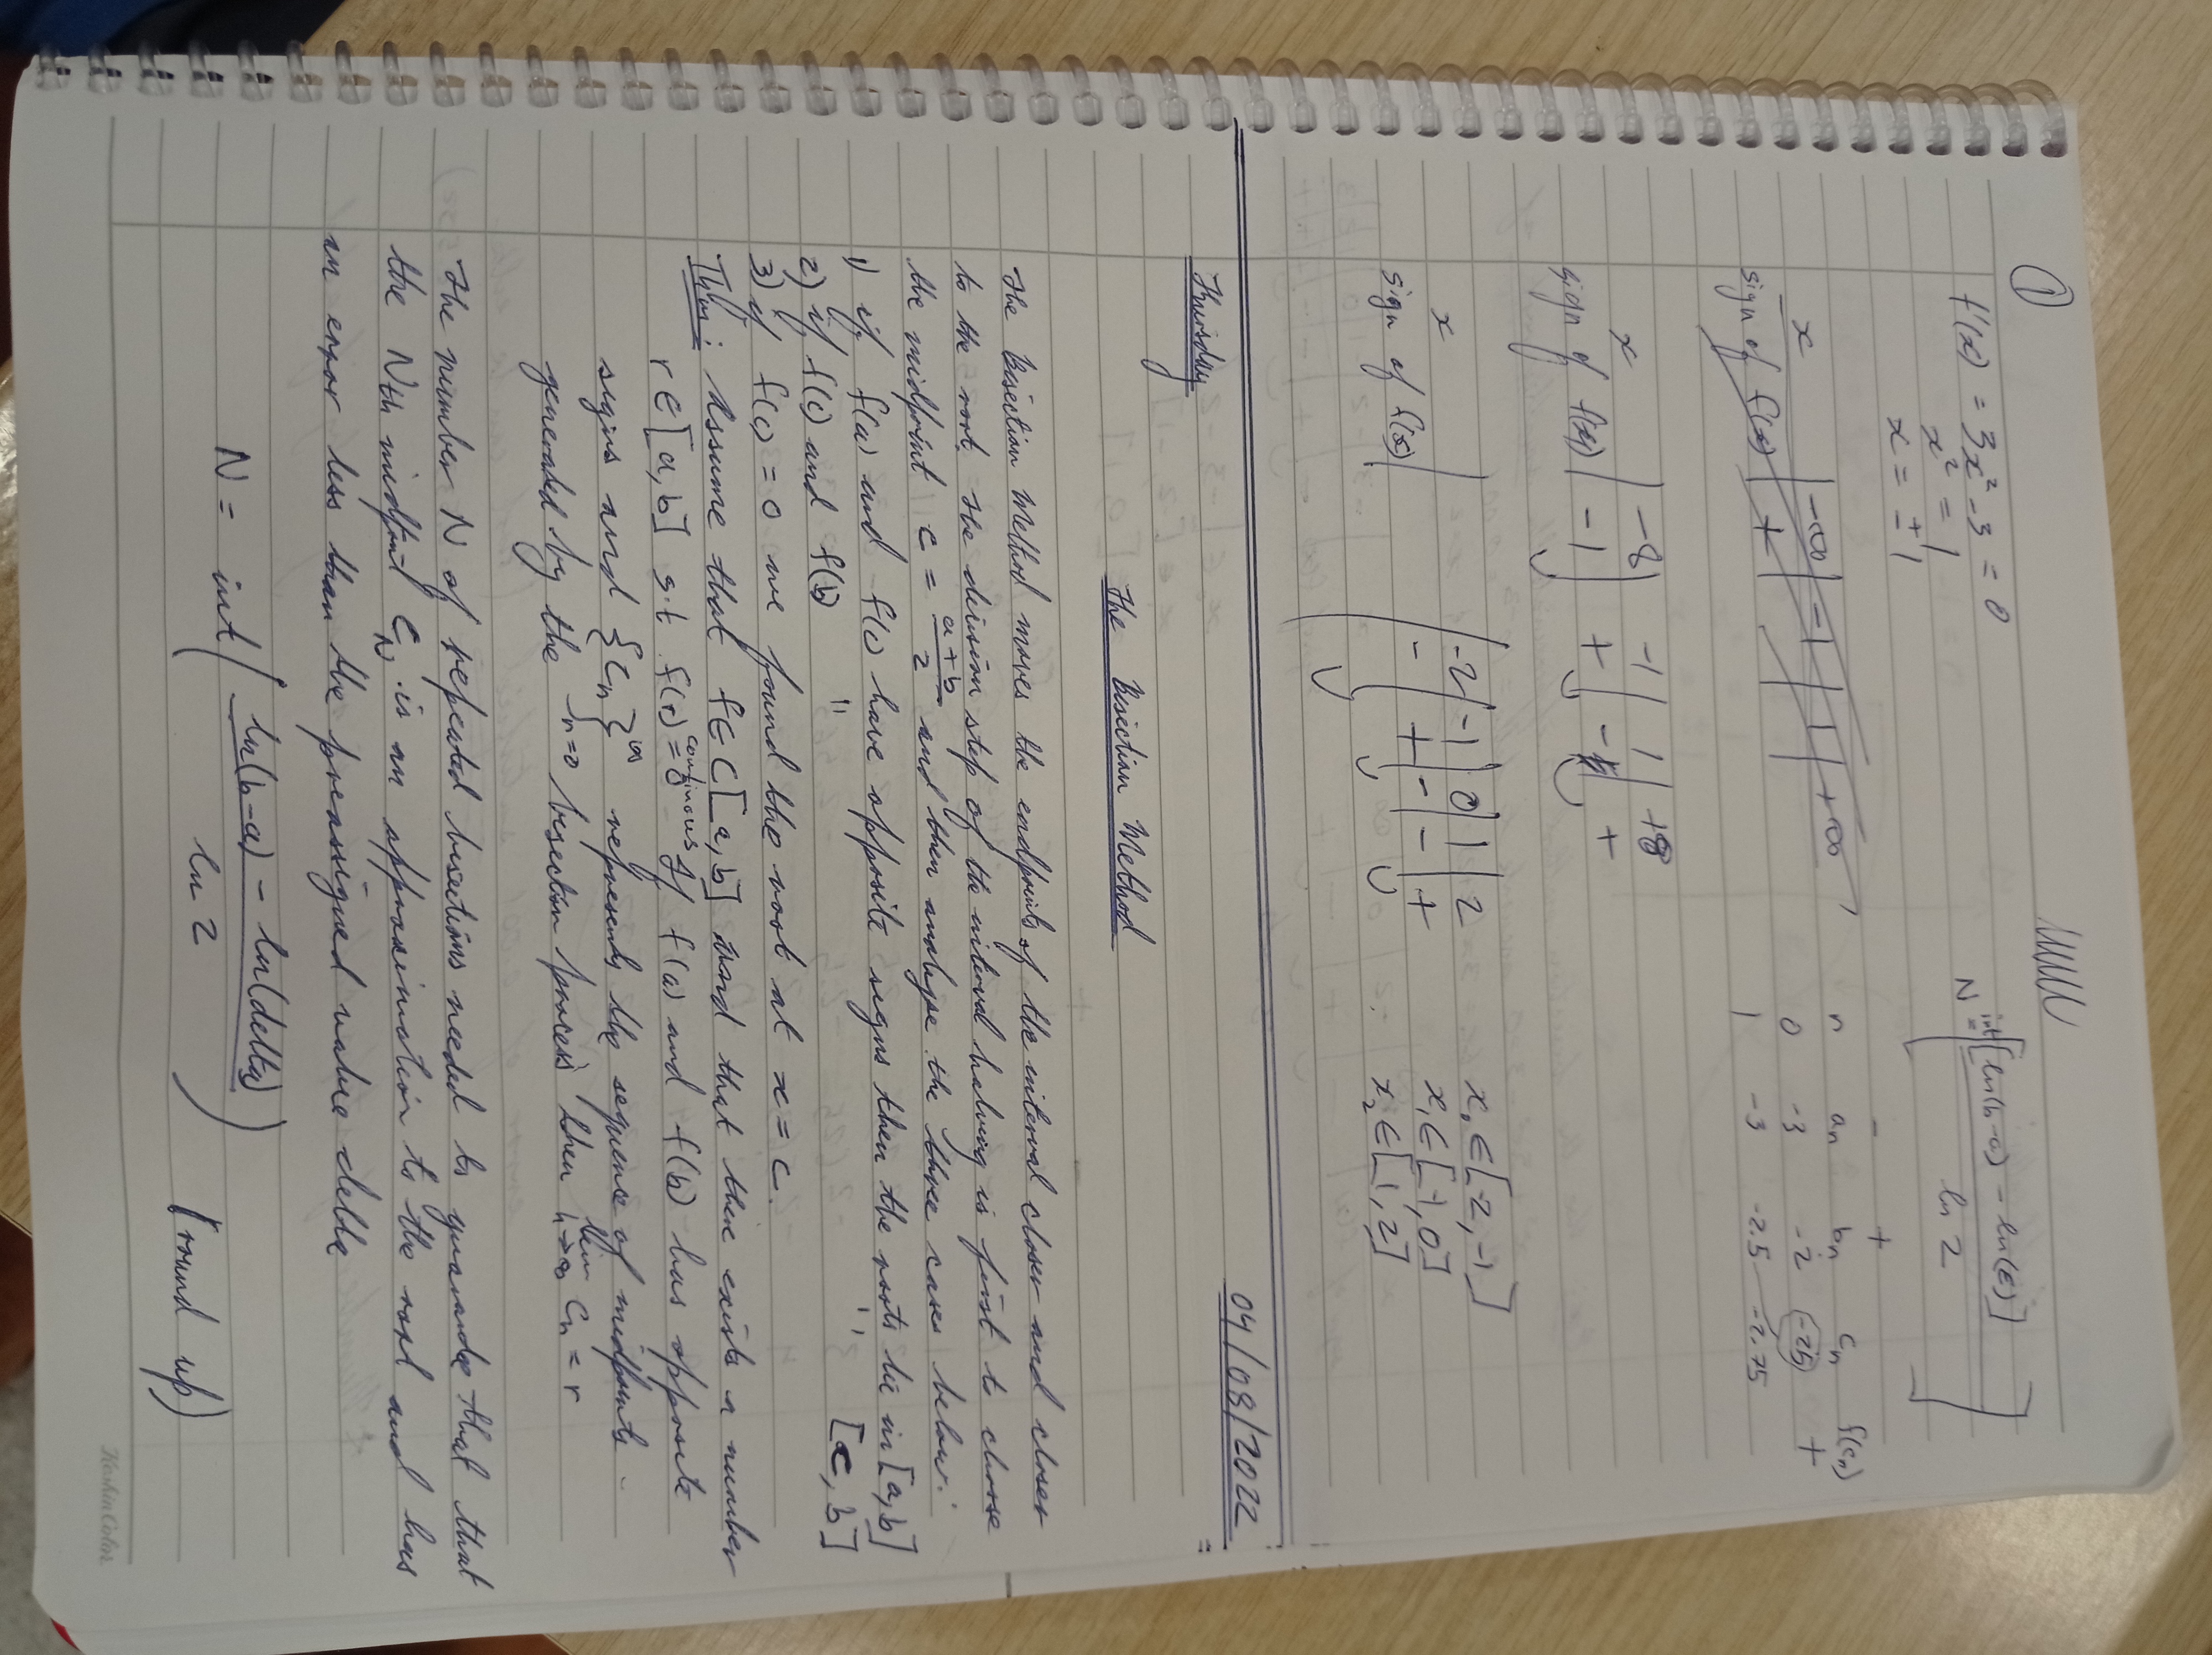 ①
f'(x) = 3x² - 3 = 0
x² = 1
x = ±1
N = int[ln(b-a) - ln(ε)]
ln 2
x | -∞ | -1 | 1 | +∞
sign of f(x) | +
n an bn cn f(cn)
- +
0 -3 -2 -2.5 +
1 -3 -2.5 -2.75
x | -∞ | -1 | 1 | +∞
sign of f(x) | - | + | - | +
x | -2 | -1 | 0 | 1 | 2
sign of f(x) | - | + | - | - | +
x₀ ∈ [-2, -1]
x₁ ∈ [-1, 0]
x₂ ∈ [1, 2]
Thursday 04/08/2022
The Bisection Method
The Bisection Method moves the endpoints of the interval closer and closer
to the root. The decision step of the interval halving is first to choose
the midpoint c = a+b/2 and then analyse the three cases below:
1) if f(a) and f(c) have opposite signs then the roots lie in [a,b]
2) if f(c) and f(b) " " [c, b]
3) if f(c) = 0 we found the root at x = c.
Thm: Assume that f∈C[a,b] and that there exists a number
continuous
r ∈ [a,b] s.t f(r) = 0 If f(a) and f(b) has opposite
signs and {cn}∞n=0 represents the sequence of midpoints
generated by the bisection process then lim n→∞ cn = r
The number N of repeated bisections needed to guarantee that that
the Nth midpoint cN is an approximation to the root and has
an error less than the preassigned value delta
N = int( ln(b-a) - ln(delta) / ln 2 ) (round up)
KoshinColor